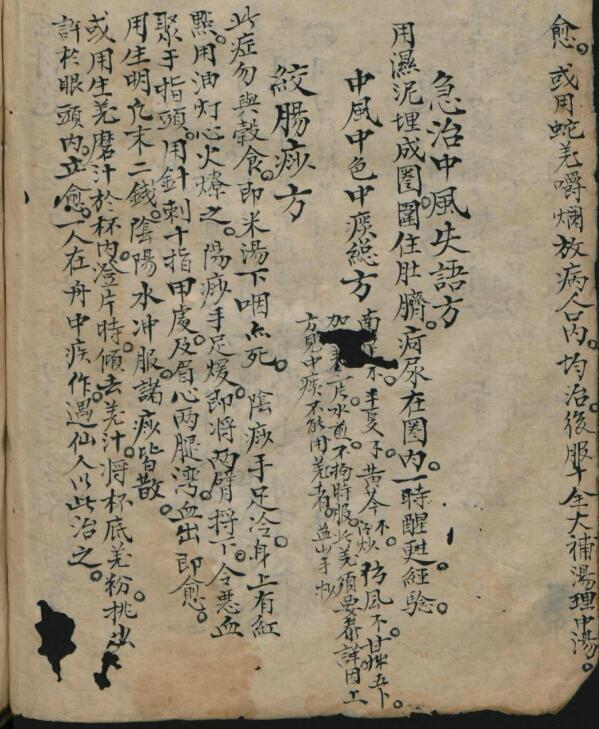 愈。或用蛇羌嚼爛放病人口内。均治。後服十全大補湯理中湯。
急治中風失語方
用濕泥埋成圏。圍住肚臍。疴尿在圏内。一時醒甦經驗。
中風中色中痰総方
南 不。半夏 子。黄芩不 炒 防風不。甘艸五卜。
加 一片。水煎。不拘時服。此羌須要 詳因上
方見中痰不能用羌者。
絞腸痧方
此症勿與穀食。即米湯下咽亦死。陰痧手足冷。身上有紅
點。用油灯心火燎之。陽痧手足煖。即將両臂捋下。令悪血
聚于指頭。用針刺十指甲處。及眉心両腿湾。血出即愈。
用生明凢末二銭。陰陽水冲服。諸痧皆散。
或用生羌磨汁於杯内。澄片時。傾去羌汁。將杯底羌粉。挑少
許於眼頭内。立愈。一人在舟中疾作。遇仙人以此治之。